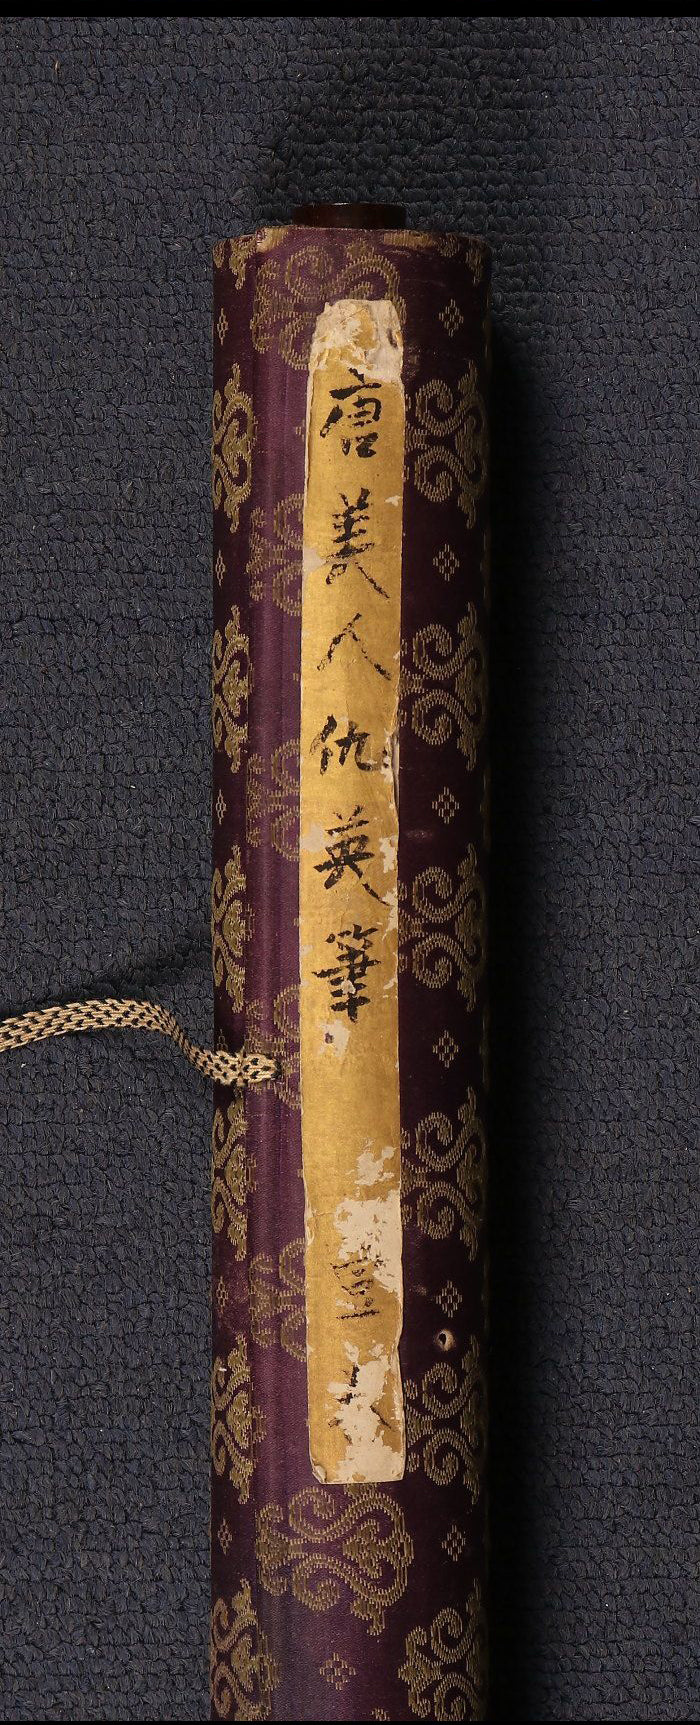 唐美人仇英筆